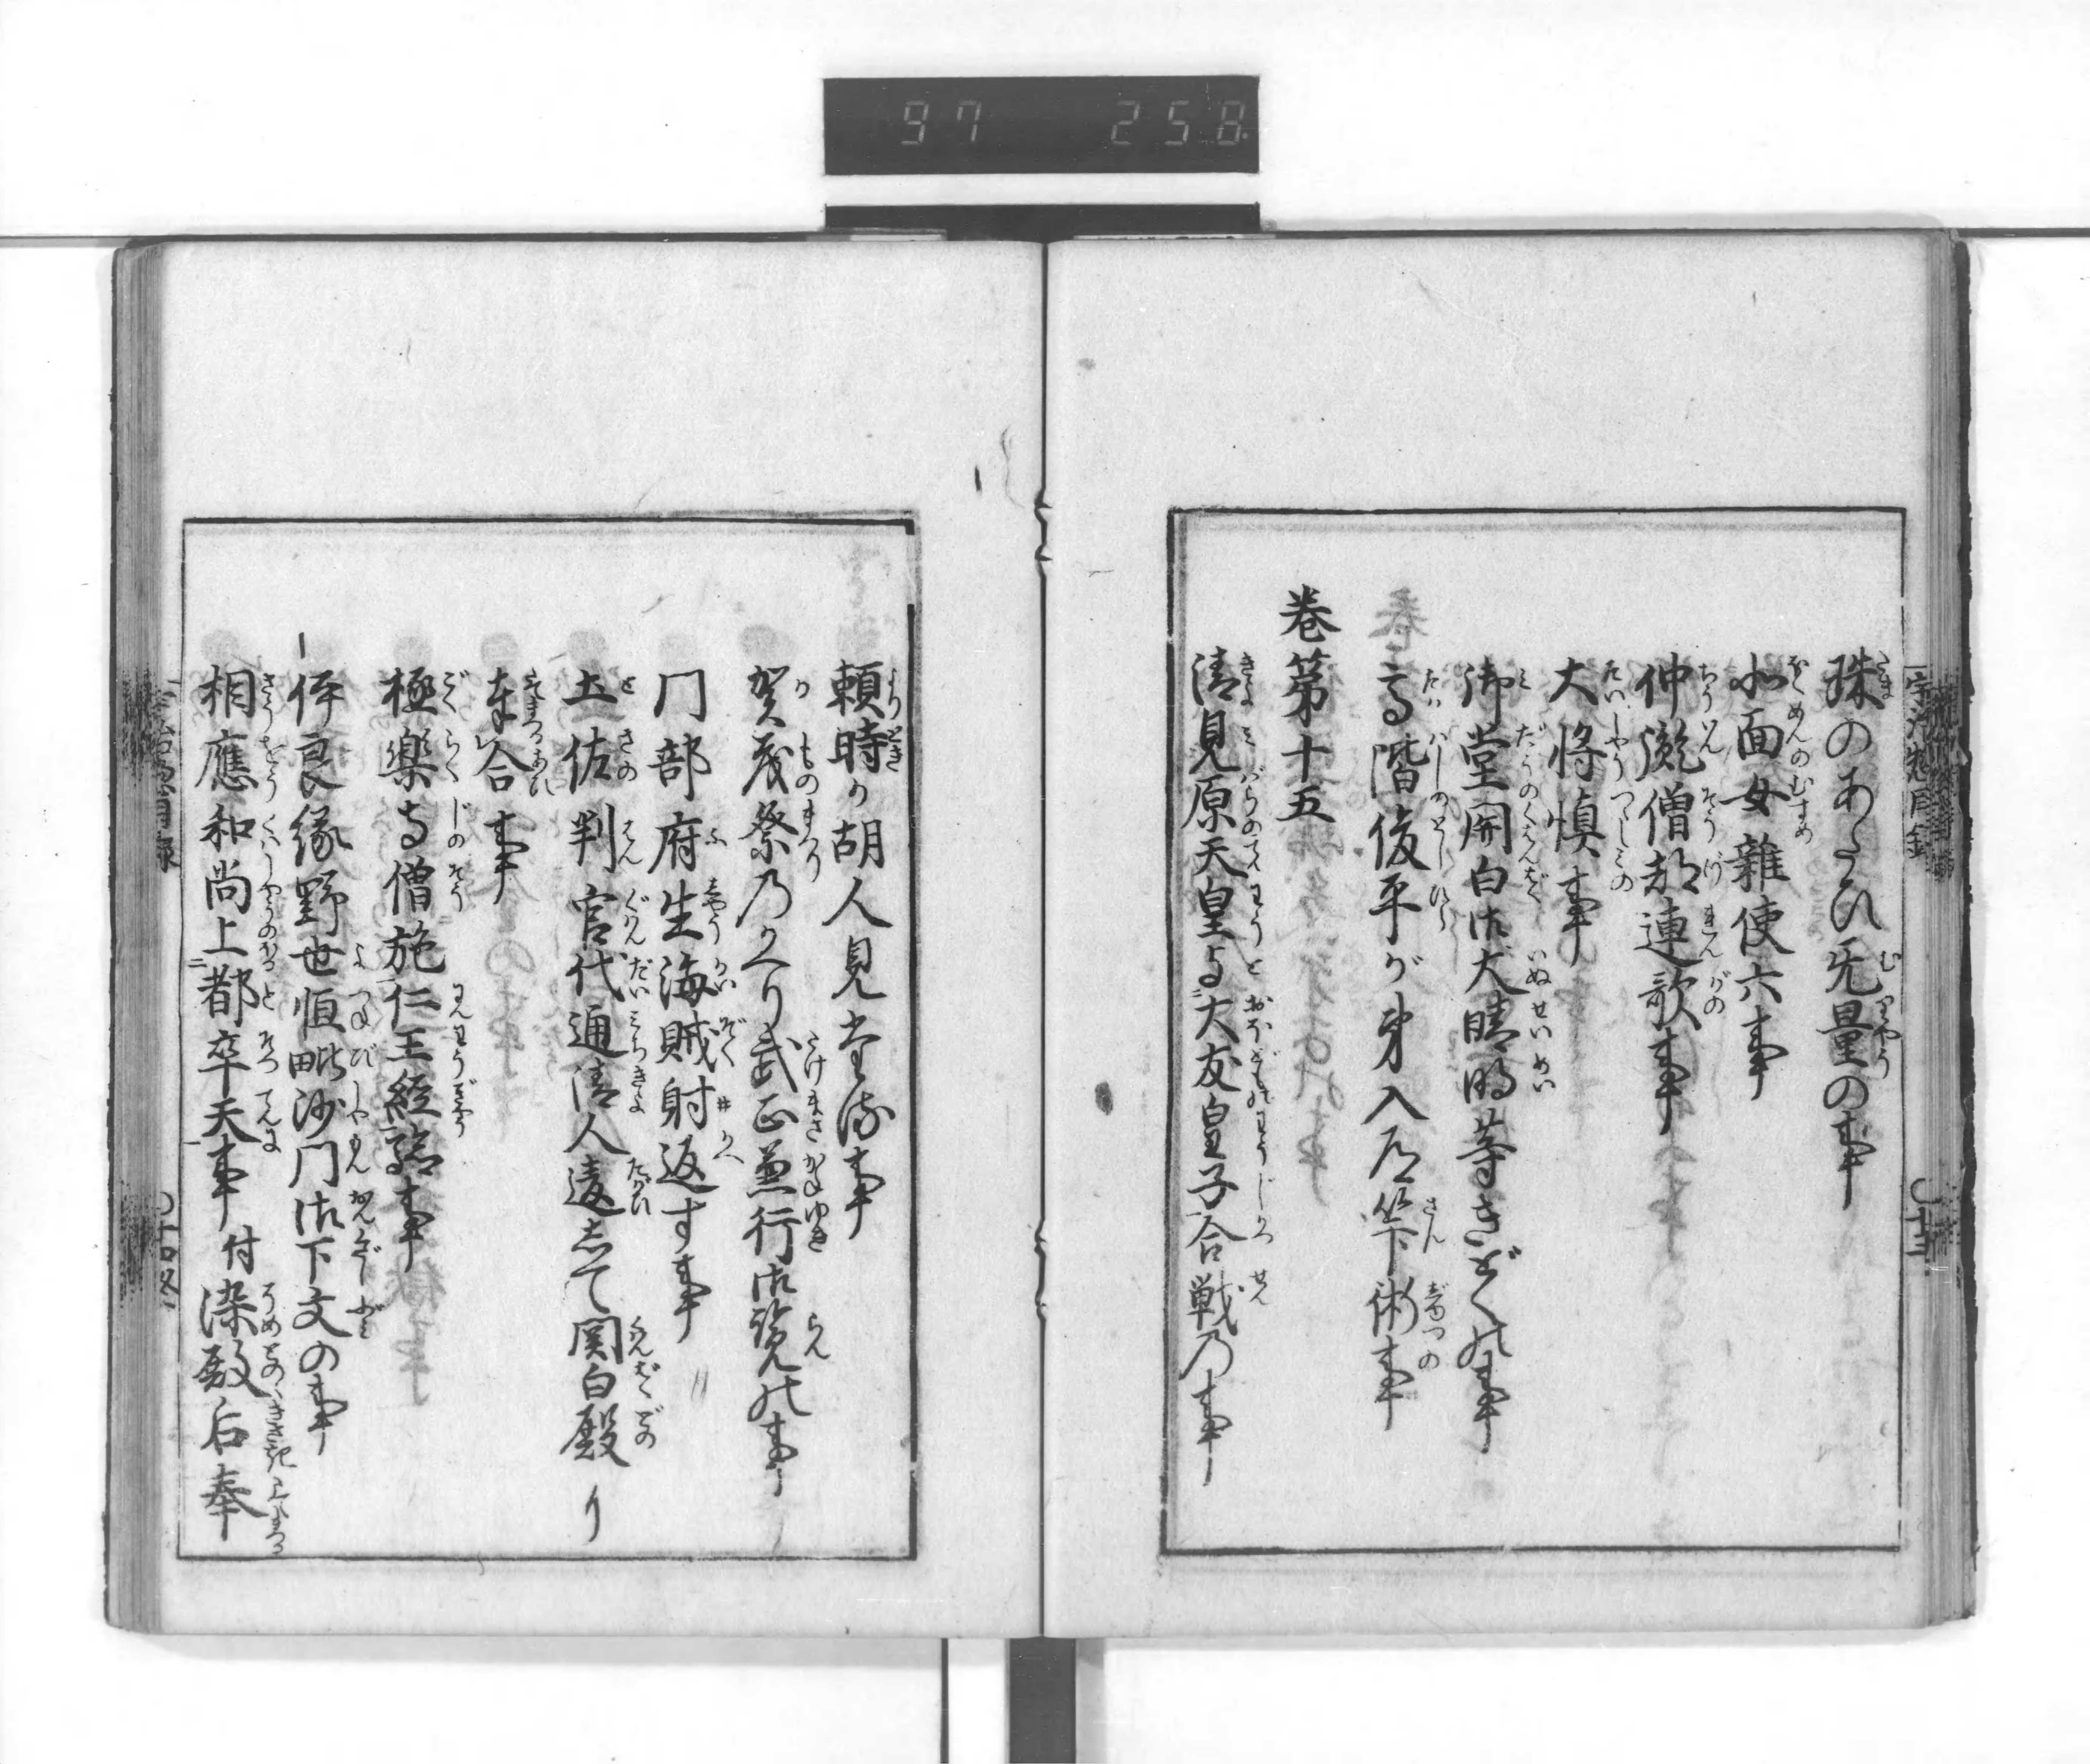 97 258
珠のあたひ无量の事
北面女雑使六事
仲胤僧都連歌事
大将慎事
御堂関白御犬晴明等きどくの事
高階俊平が弟入道筭術事
巻第十五
清見原天皇与大友皇子合戦乃事
頼時が胡人見たる事
賀茂祭乃かへり武正兼行御覧の事
門部府生海賊射返す事
土佐判官代通清人違して関白殿り
奉合事
極楽寺僧施仁王経験事
伊良縁野世恒毗沙門御下文の事
相應和尚上都卒天事付染殿后奉